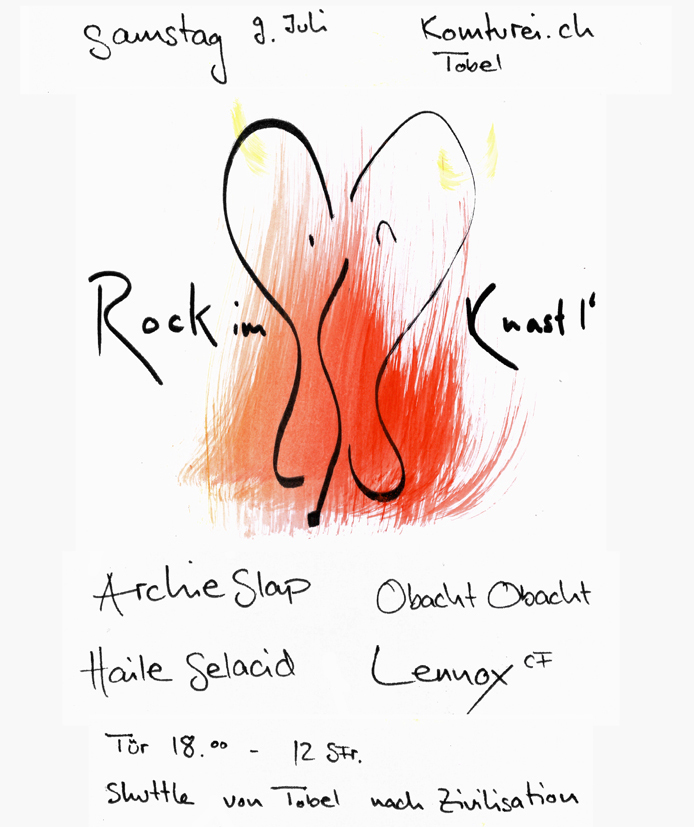 Samstag 9. Juli
Komturei.ch
Tobel
Rock im Knast 1'
Archie Slap
Obacht Obacht
Haile Selacid
Lennox CF
Tür 18.00 - 12 Sfr.
Shuttle von Tobel nach Zivilisation